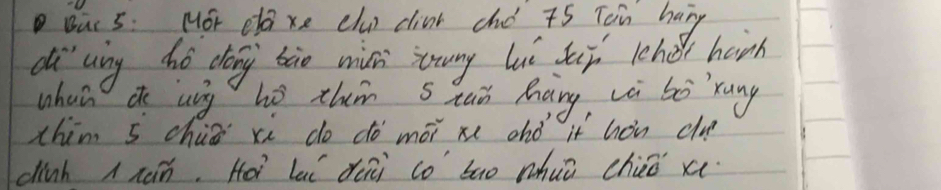 Bài 5: Một đoàn xe dự định chở 75 tấn hàng
để ủng hộ đồng bào miền trung lúc sắp khởi hành
nhận để ủng hộ thêm 5 tấn hàng và bổ xung
thêm 5 chiếc xe do đó mỗi xe chở ít hơn dự
định 1 tấn. Hỏi lúc đầu có bao nhiêu chiếc xe.